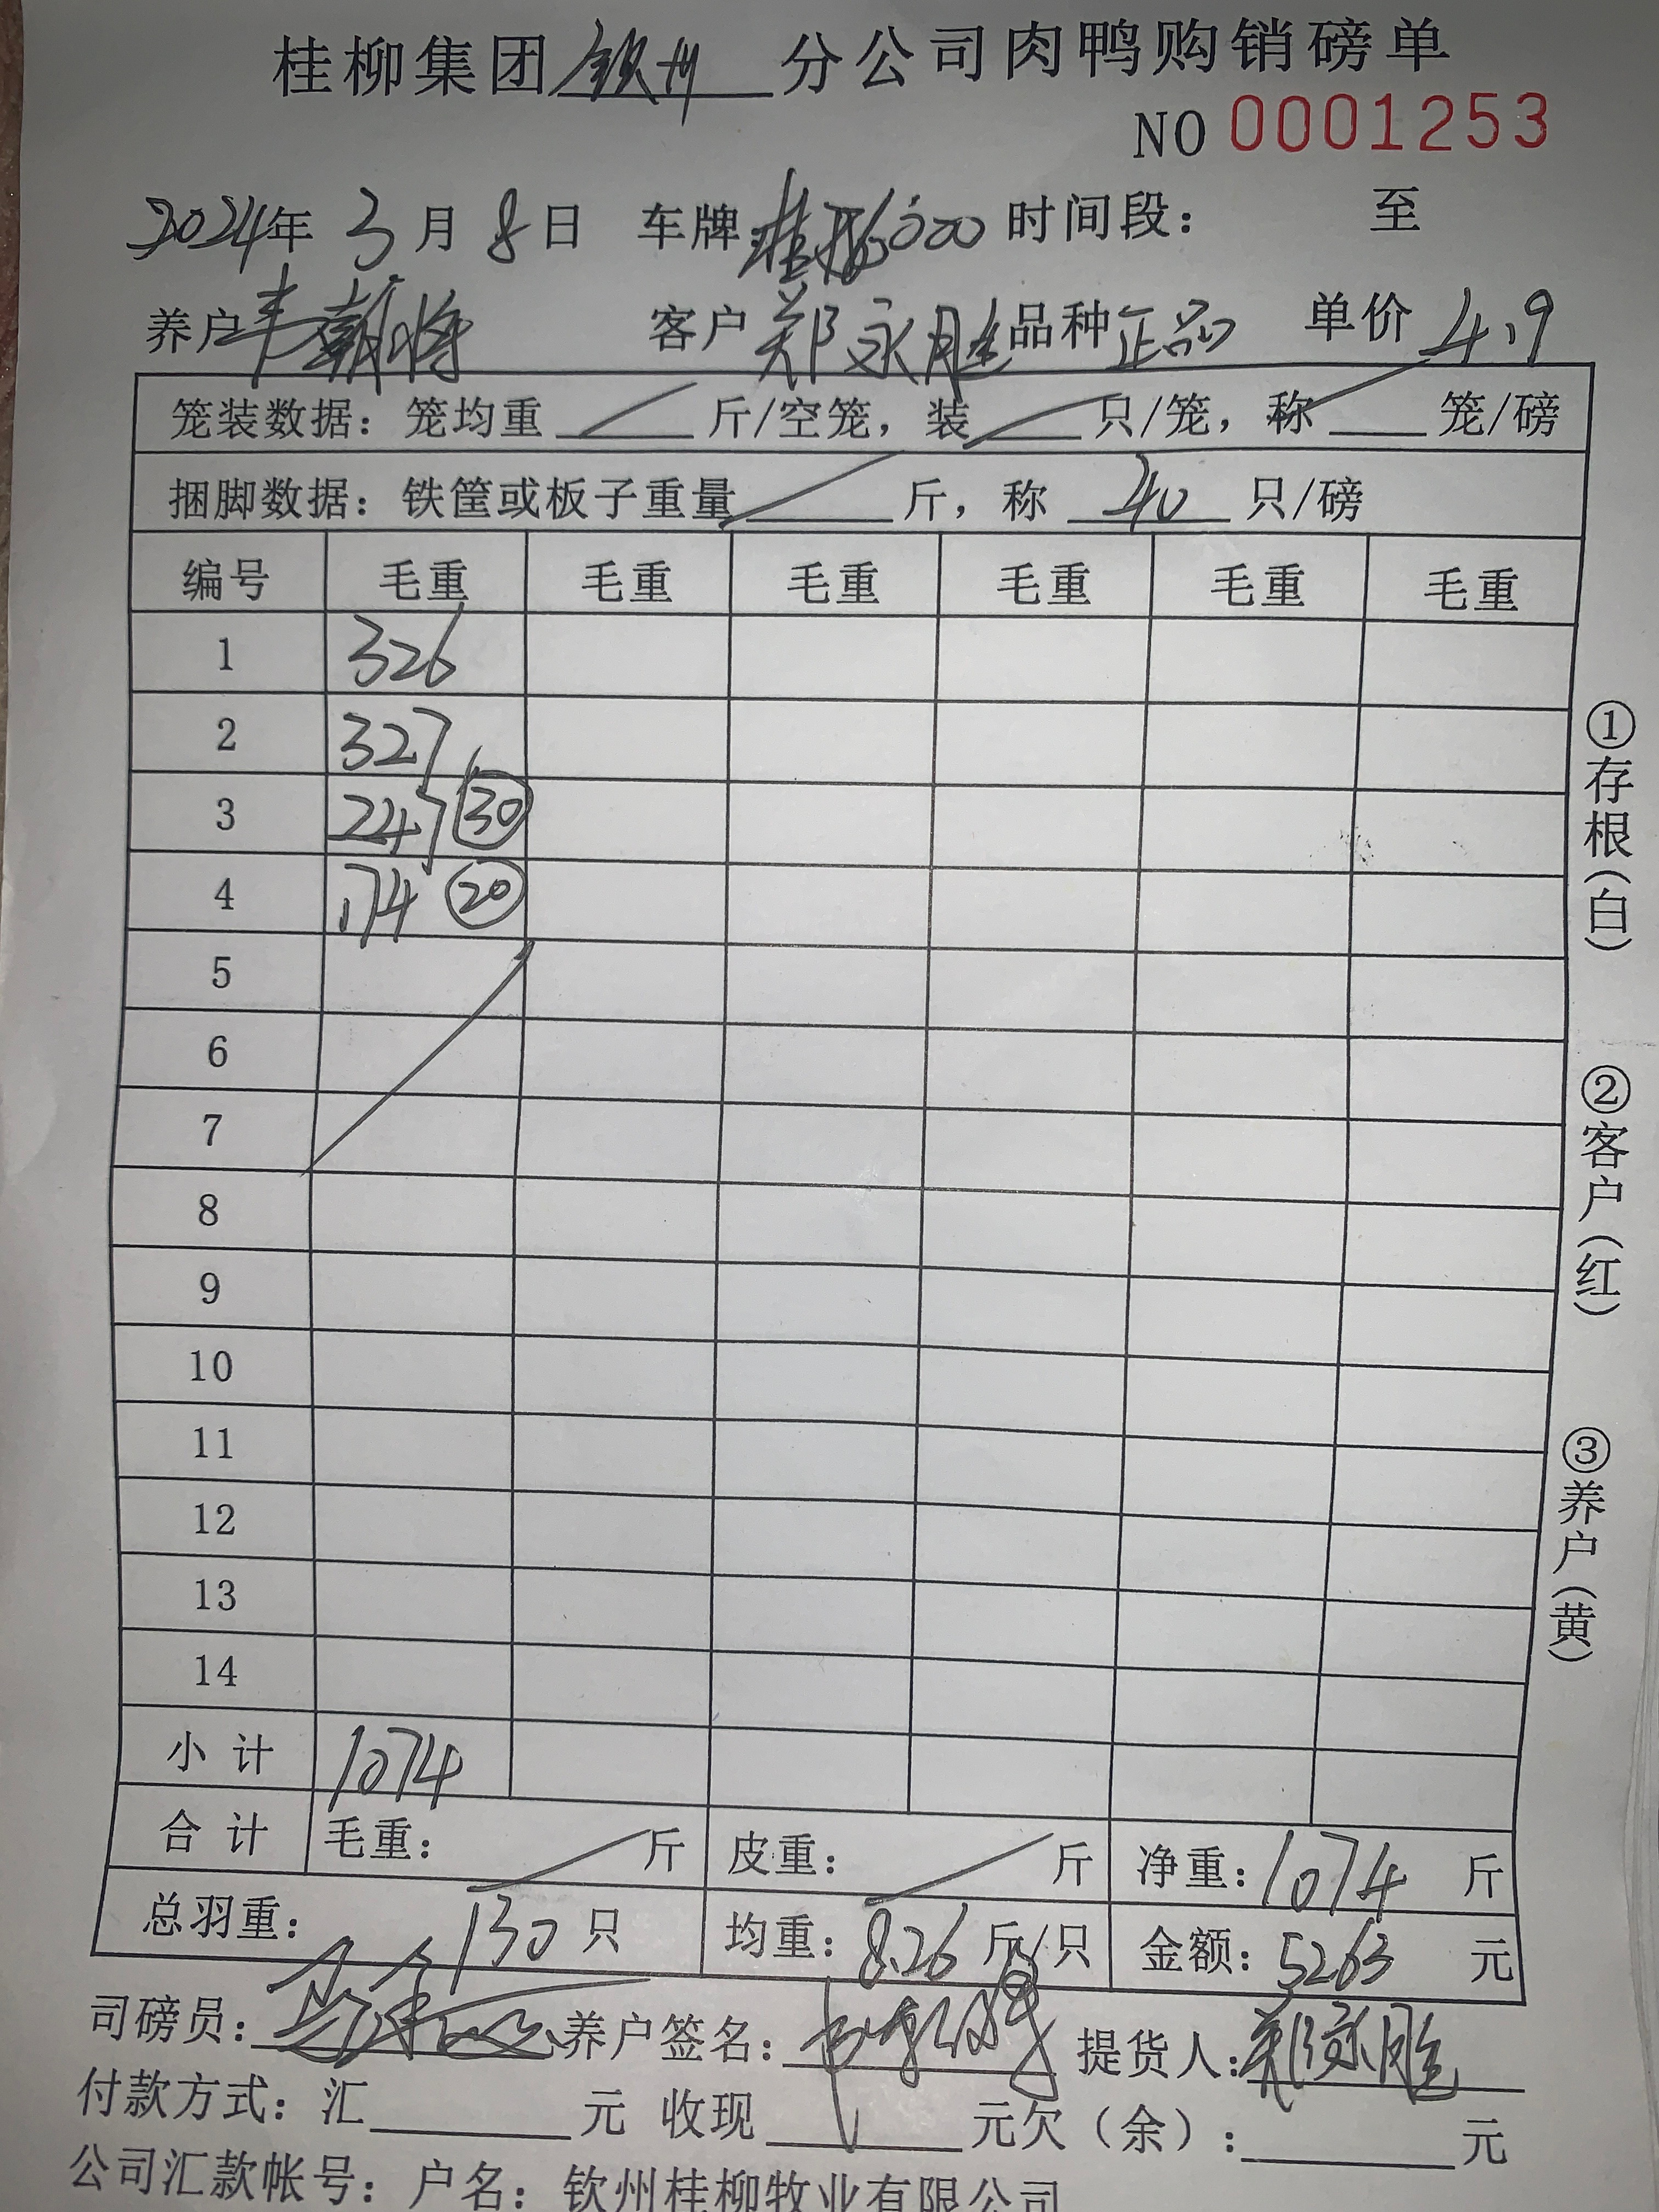 桂柳集团 钦州 分公司肉鸭购销磅单
NO 0001253
2024年 3月 8日 车牌 时间段： 至
养户 客户 郑永胜 品种 正品 单价 4.9
笼装数据：笼均重 斤/空笼，装 只/笼，称 笼/磅
捆脚数据：铁筐或板子重量 斤，称 40 只/磅
编号 毛重 毛重 毛重 毛重 毛重 毛重
1 326
2 327
3 247 ㉚
4 174 ⑳
5
6
7
8
9
10
11
12
13
14
小计 1074
合计 毛重： 斤 皮重： 斤 净重：1074 斤
总羽重： 130 只 均重：8.26 斤/只 金额：5263 元
司磅员： 养户签名： 提货人：郑永胜
付款方式：汇 元 收现 元欠（余）： 元
公司汇款帐号：户名：钦州桂柳牧业有限公司
①存根（白）
②客户（红）
③养户（黄）